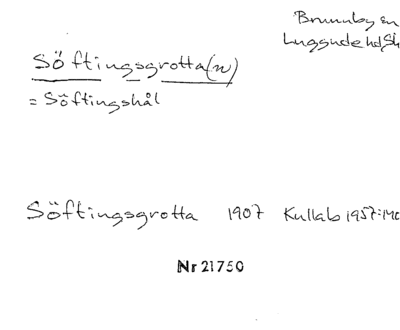 Brunnby sn
Luggude hd Sk
Söftingsgrotta(n)
= Söftingshål
Söftingsgrotta 1907 Kullab 1957:140
Nr 21750